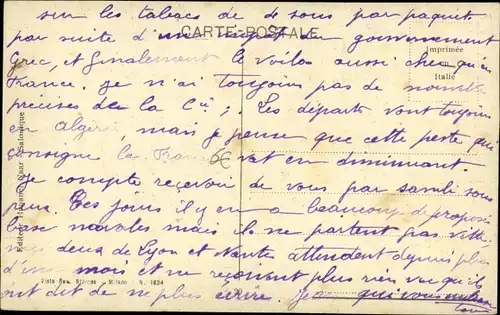 sur les tabacs de de sous par paquets
CARTE POSTALE
par suite d'un du gouvernement
Grec, et finalement le voilà aussi cher qu'en
Imprimée
Italie
France. Je n'ai toujours pas de nouvelles
precises de la Cie ; Les départs vont toujours
en Algérie, mais je pense que cette peste qui
consigne la France va en diminuant.
6€
Je compte recevoir de vous par samedi sous
peu. Ces jours il y en a beaucoup de proposés
base navales mais ils ne partent pas vite,
deux de Lyon et Nantes attendent depuis plus
d'un mois et ne reçoivent plus rien vu qu'ils
ont dit de ne plus écrire. Je qui vous
tous
Editeur Hananel Naar Salonique
Visto Rev. Stampa - Milano N. 1634